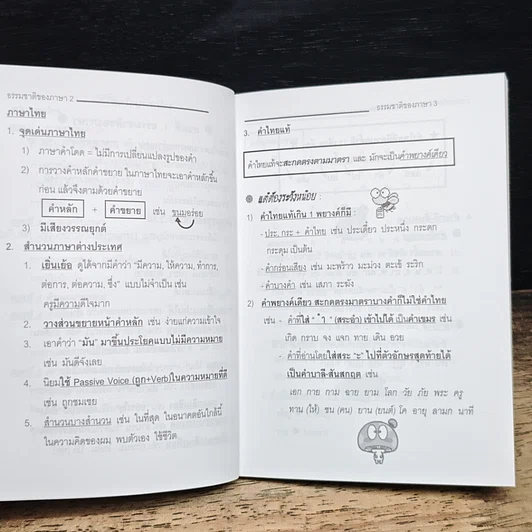 ธรรมชาติของภาษา 2
ภาษาไทย
1. จุดเด่นภาษาไทย
1) ภาษาคำโดด = ไม่มีการเปลี่ยนแปลงรูปของคำ
2) การวางคำหลักคำขยาย ในภาษาไทยจะเอาคำหลักขึ้น
ก่อน แล้วจึงตามด้วยคำขยาย
คำหลัก + คำขยาย เช่น ขนมอร่อย
3) มีเสียงวรรณยุกต์
2. สำนวนภาษาต่างประเทศ
1. เยิ่นเย้อ ดูได้จากมีคำว่า "มีความ, ให้ความ, ทำการ,
ต่อการ, ต่อความ, ซึ่ง" แบบไม่จำเป็น เช่น
ครูมีความดีใจมาก
2. วางส่วนขยายหน้าคำหลัก เช่น ง่ายแก่ความเข้าใจ
3. เอาคำว่า "มัน" มาขึ้นประโยคแบบไม่มีความหมาย
เช่น มันดีจังเลย
4. นิยมใช้ Passive Voice (ถูก+Verb)ในความหมายที่ดี
เช่น ถูกชมเชย
5. สำนวนบางสำนวน เช่น ในที่สุด ในอนาคตอันใกล้นี้
ในความคิดของผม พบตัวเอง ใช้ชีวิต
ธรรมชาติของภาษา 3
3. คำไทยแท้
คำไทยแท้จะสะกดตรงตามมาตรา และ มักจะเป็นคำพยางค์เดียว
แต่ต้องระวังหน่อย :
1) คำไทยแท้เกิน 1 พยางค์ก็มี :
- ประ, กระ + คำไทย เช่น ประเดี๋ยว ประหนึ่ง กระดก
กระตุม เป็นต้น
- คำกร่อนเสียง เช่น มะพร้าว มะม่วง ตะเข้ ระริก
- คำบางคำ เช่น เสภา ระฆัง
2) คำพยางค์เดียว สะกดตรงมาตราบางคำก็ไม่ใช่คำไทย
เช่น - คำที่ใส่ " ำ " (สระอำ) เข้าไปได้ เป็นคำเขมร เช่น
เกิด กราบ จง แจก ทาย เดิน อวย
- คำที่อ่านโดยใส่สระ "ะ" ไปที่ตัวอักษรสุดท้ายได้
เป็นคำบาลี-สันสกฤต เช่น
เอก กาย กาม ฉาย ยาม โลก วัย ภัย พระ ครู
ทาน (ให้) ชน (คน) ยาน (ยนต์) โค อายุ ลามก นาที